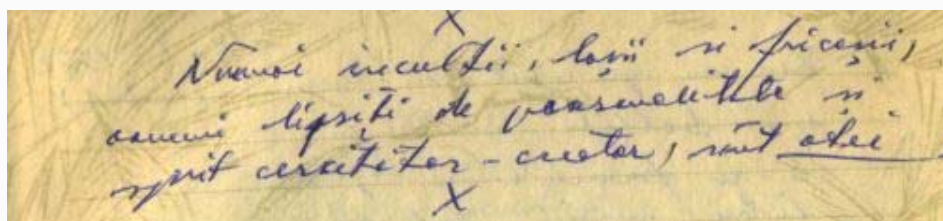 X
Numai inculții, lașii si fricoșii,
oameni lipsiți de personalitate si
spirit cercetător - creator, sînt atei
X